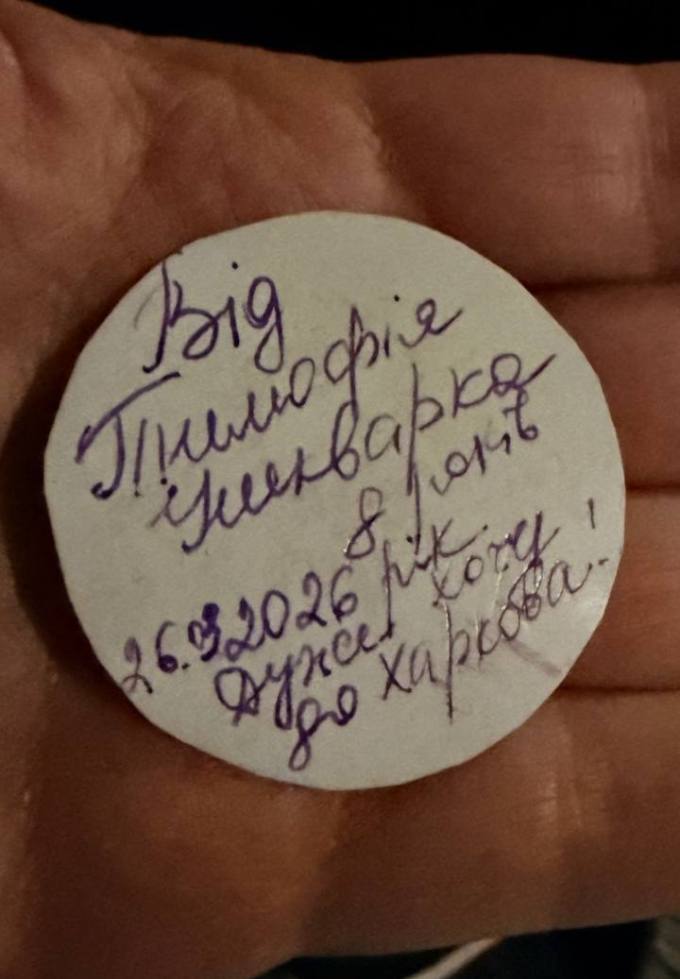 Від
Тимофія
Чинварка
8 років
26.3.2026 рік.
Дуже хочу
до харкова!